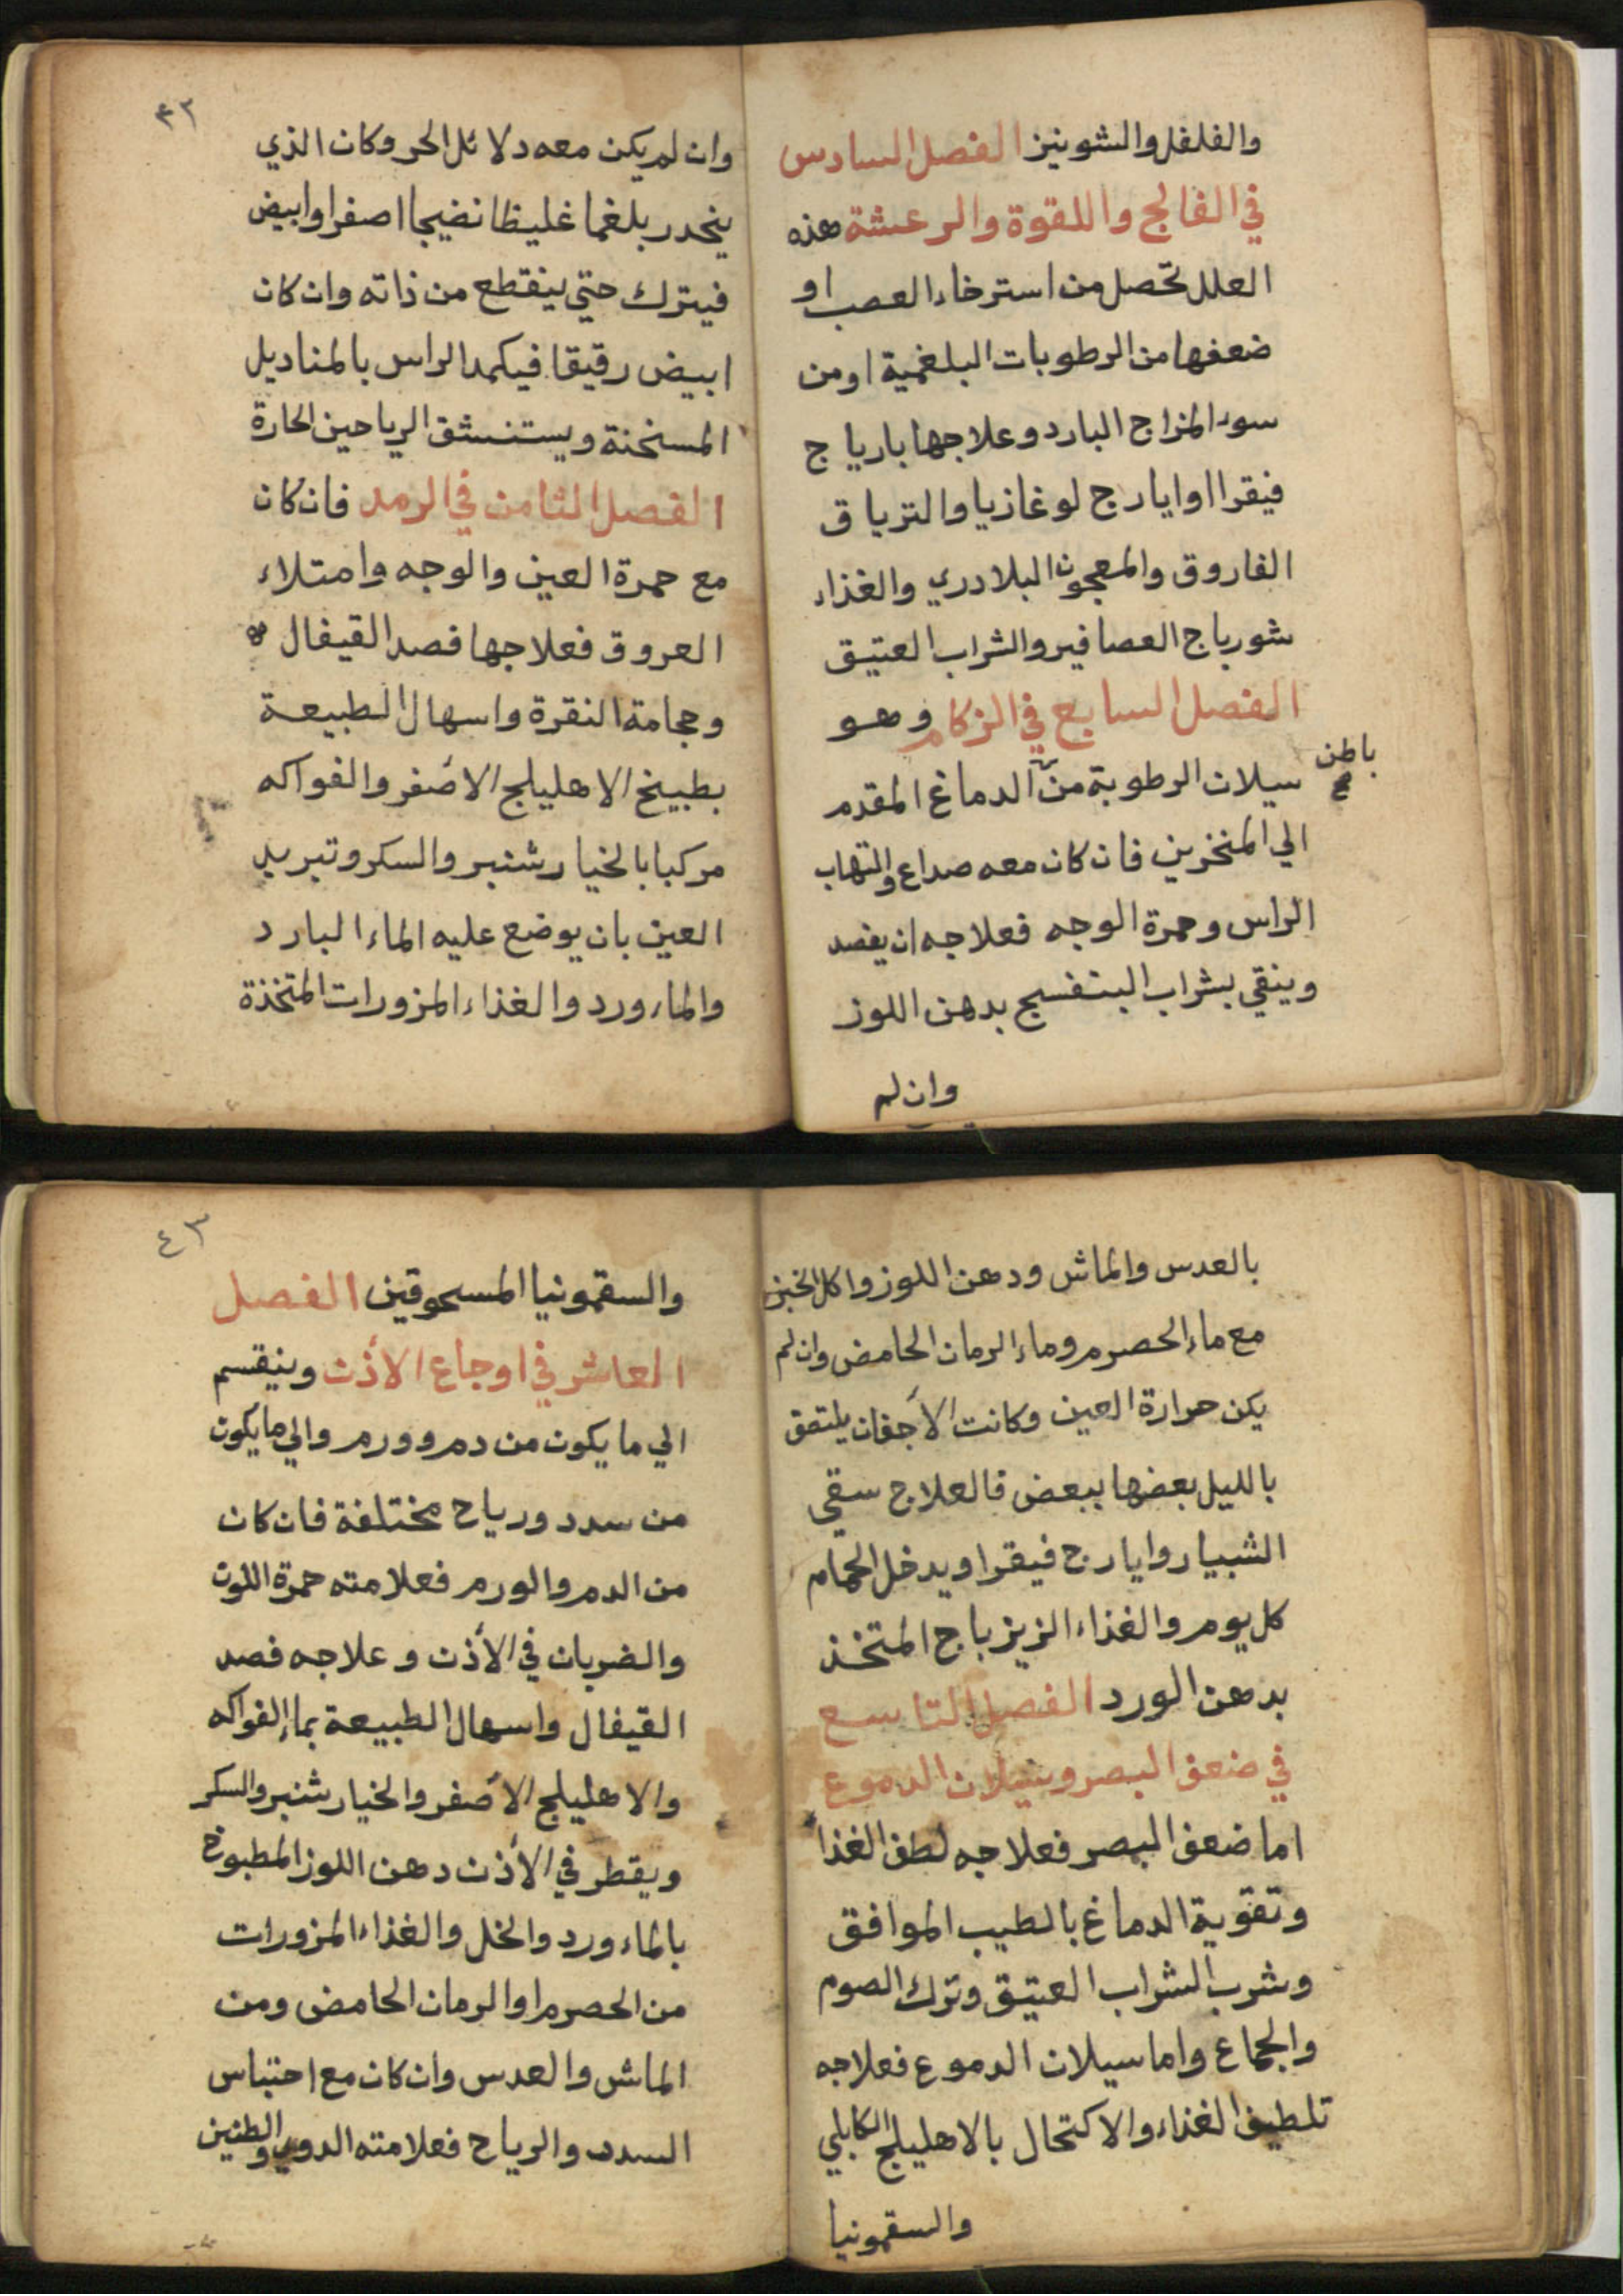 والفلفل والشونيز الفصل السادس
في الفالج واللقوة والرعشة هذه
العلل تحصل من استرخاء العصب او
ضعفها من الرطوبات البلغمية اومن
سوء المزاج البارد وعلاجها بارياج
فيقرا اوايارج لوغازيا والترياق
الفاروق والمعجون البلادري والغذاء
شورباج العصافير والشراب العتيق
الفصل السابع في الزكام وهو
سيلان الرطوبة من الدماغ المقدم
باطن
صح
الي المنخرين فان كان معه صداع والتهاب
الراس وحمرة الوجه فعلاجه ان يفصد
وينقي بشراب البنفسج بدهن اللوز
وان لم
٤٢
وان لم يكن معه دلائل الحر وكان الذي
ينحدر بلغما غليظا نضيجا اصفر اوابيض
فيترك حتي ينقطع من ذاته وان كان
ابيض رقيقا فيكمد الراس بالمناديل
المسخنة ويستنشق الرياحين الحارة
الفصل الثامن في الرمد فان كان
مع حمرة العين والوجه وامتلاء
العروق فعلاجها فصد القيفال
وحجامة النقرة واسهال الطبيعة
بطبيخ الاهليلج الأصفر والفواكه
مركبا بالخيارشنبر والسكر وتبريد
العين بان يوضع عليه الماء البارد
والماء ورد والغذاء المزورات المتخذة
بالعدس والماش ودهن اللوز واكل الخبز
مع ماء الحصرم وماء الرمان الحامض وان لم
يكن حرارة العين وكانت الأجفان يلتصق
بالليل بعضها ببعض فالعلاج سقي
الشبيار وايارج فيقرا ويدخل الحمام
كل يوم والغذاء الزيزباج المتخذ
بدهن الورد الفصل التاسع
في ضعف البصر وسيلان الدموع
اما ضعف البصر فعلاجه لطف الغذا
وتقوية الدماغ بالطيب الموافق
وشرب الشراب العتيق وترك الصوم
والجماع واما سيلان الدموع فعلاجه
تلطيف الغذاء والاكتحال بالاهليلج الكابلي
والسقمونيا
٤٣
والسقمونيا المسحوقين الفصل
العاشر في اوجاع الأذن وينقسم
الي ما يكون من دم وورم والي ما يكون
من سدد ورياح مختلفة فان كان
من الدم والورم فعلامته حمرة اللون
والضربان في الأذن وعلاجه فصد
القيفال واسهال الطبيعة بماء الفواكه
والاهليلج الأصفر والخيارشنبر والسكر
ويقطر في الأذن دهن اللوز المطبوخ
بالماء ورد والخل والغذاء المزورات
من الحصرم اوالرمان الحامض ومن
الماش والعدس وان كان مع احتباس
السدد والرياح فعلامته الدوي والطنين